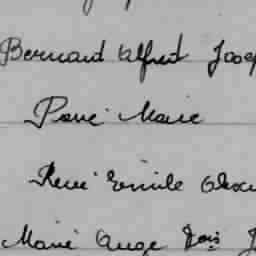 Bernard Alfred Josep
René Marie
René Emile Alex
Marie Ange